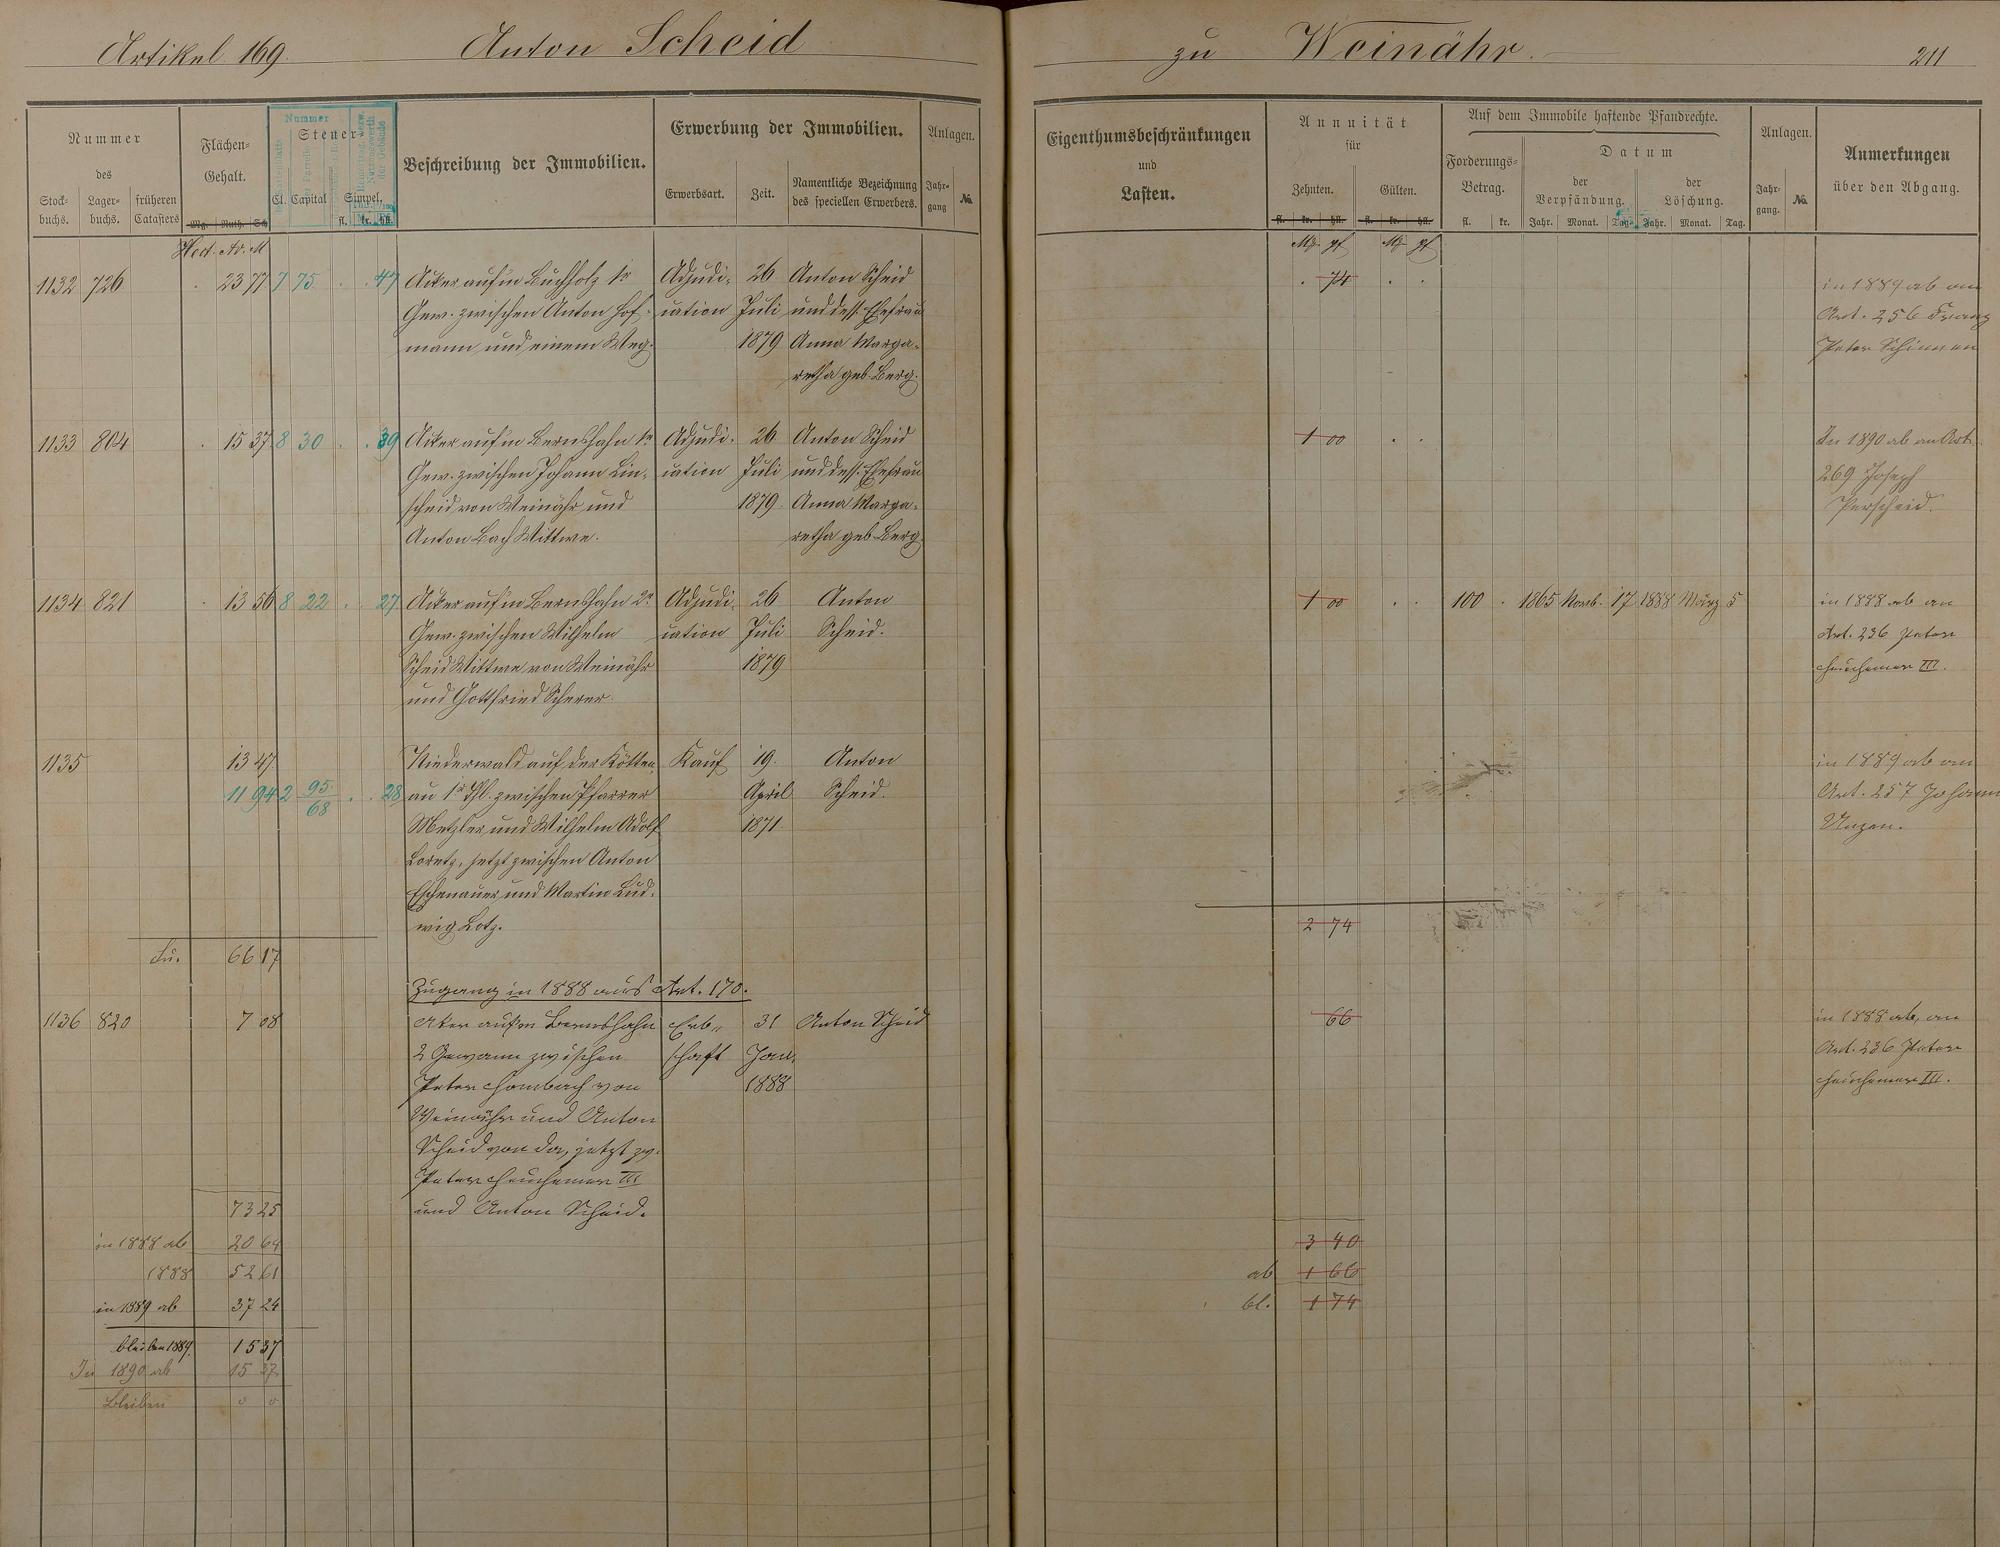 Artikel 169. Anton Scheid zu Weinähr. 211
Nummer des
Stockbuchs. Lagerbuchs. früheren Catasters
Flächen-Gehalt.
Mg. Ruth. Sch
Nummer
Steuer-
Cl. Capital Simpel.
fl. kr. hll.
Beschreibung der Immobilien.
Erwerbung der Immobilien.
Erwerbsart. Zeit. Namentliche Bezeichnung des speciellen Erwerbers.
Anlagen.
Jahrgang №.
Eigenthumsbeschränkungen
und
Lasten.
Annuität
für
Zehnten. Gülten.
fl. kr. hll. fl. kr. hll.
Auf dem Immobile haftende Pfandrechte.
Forderungs-Betrag.
fl. kr.
Datum
der Verpfändung. der Löschung.
Jahr. Monat. Tag. Jahr. Monat. Tag.
Anlagen.
Jahrgang. №.
Anmerkungen
über den Abgang.
Hect. Ar. M
Mg pf Mg pf
1132 726 23 77 7 75 47 Acker auf'm Buchholz 1r Adjudi- 26 Anton Scheid 74 in 1889 ab an
Gew. zwischen Anton Hof- cation Juli und dess. Ehefrau Art. 256 Franz
mann und einem Weg. 1879 Anna Marga- Peter Schinnen
retha geb. Berg.
1133 804 15 37 8 30 39 Acker auf'm Bernshahn 1r Adjudi- 26 Anton Scheid 1 00 In 1890 ab an Art.
Gew. zwischen Johann Lin- cation Juli und dess. Ehefrau 269 Joseph
scheid von Weinähr und 1879 Anna Marga- Perscheid.
Anton Bach Wittwe. retha geb. Berg.
1134 821 13 56 8 22 27 Acker auf'm Bernshahn 2r Adjudi- 26 Anton 1 00 100 1865 Novb. 17 1888 März 5 in 1888 ab an
Gew. zwischen Wilhelm cation Juli Scheid. Art. 236 Peter
Scheid Wittwe von Weinähr 1879 III.
und Gottfried Scherer.
1135 13 47 Niederwald auf der Kötten- Kauf 19. Anton in 1889 ab an
11 94 2 95 68 28 au 1r Thl. zwischen Pfarrer April Scheid. Art. 257 Johann
Metzler und Wilhelm Adolf 1871
Loretz, jetzt zwischen Anton
Eschenauer und Martin Lud-
wig Lotz. 2 74
Su. 66 17
Zugang in 1888 aus Art. 170.
1136 820 7 08 Aker aufm Bernshahn Erb- 31 Anton Scheid 66 in 1888 ab, an
2 Gewann zwischen schaft Jan. Art. 236 Peter
Peter Hombach von 1888 III.
Weinähr und Anton
Scheid von da, jetzt zw.
Peter III
73 25 und Anton Scheid.
in 1888 ab 20 64 3 40
1888 52 61 ab 1 66
in 1889 ab 37 24 bl. 1 74
bleiben 1889. 15 37
In 1890 ab 15 37
Bleiben 0 0